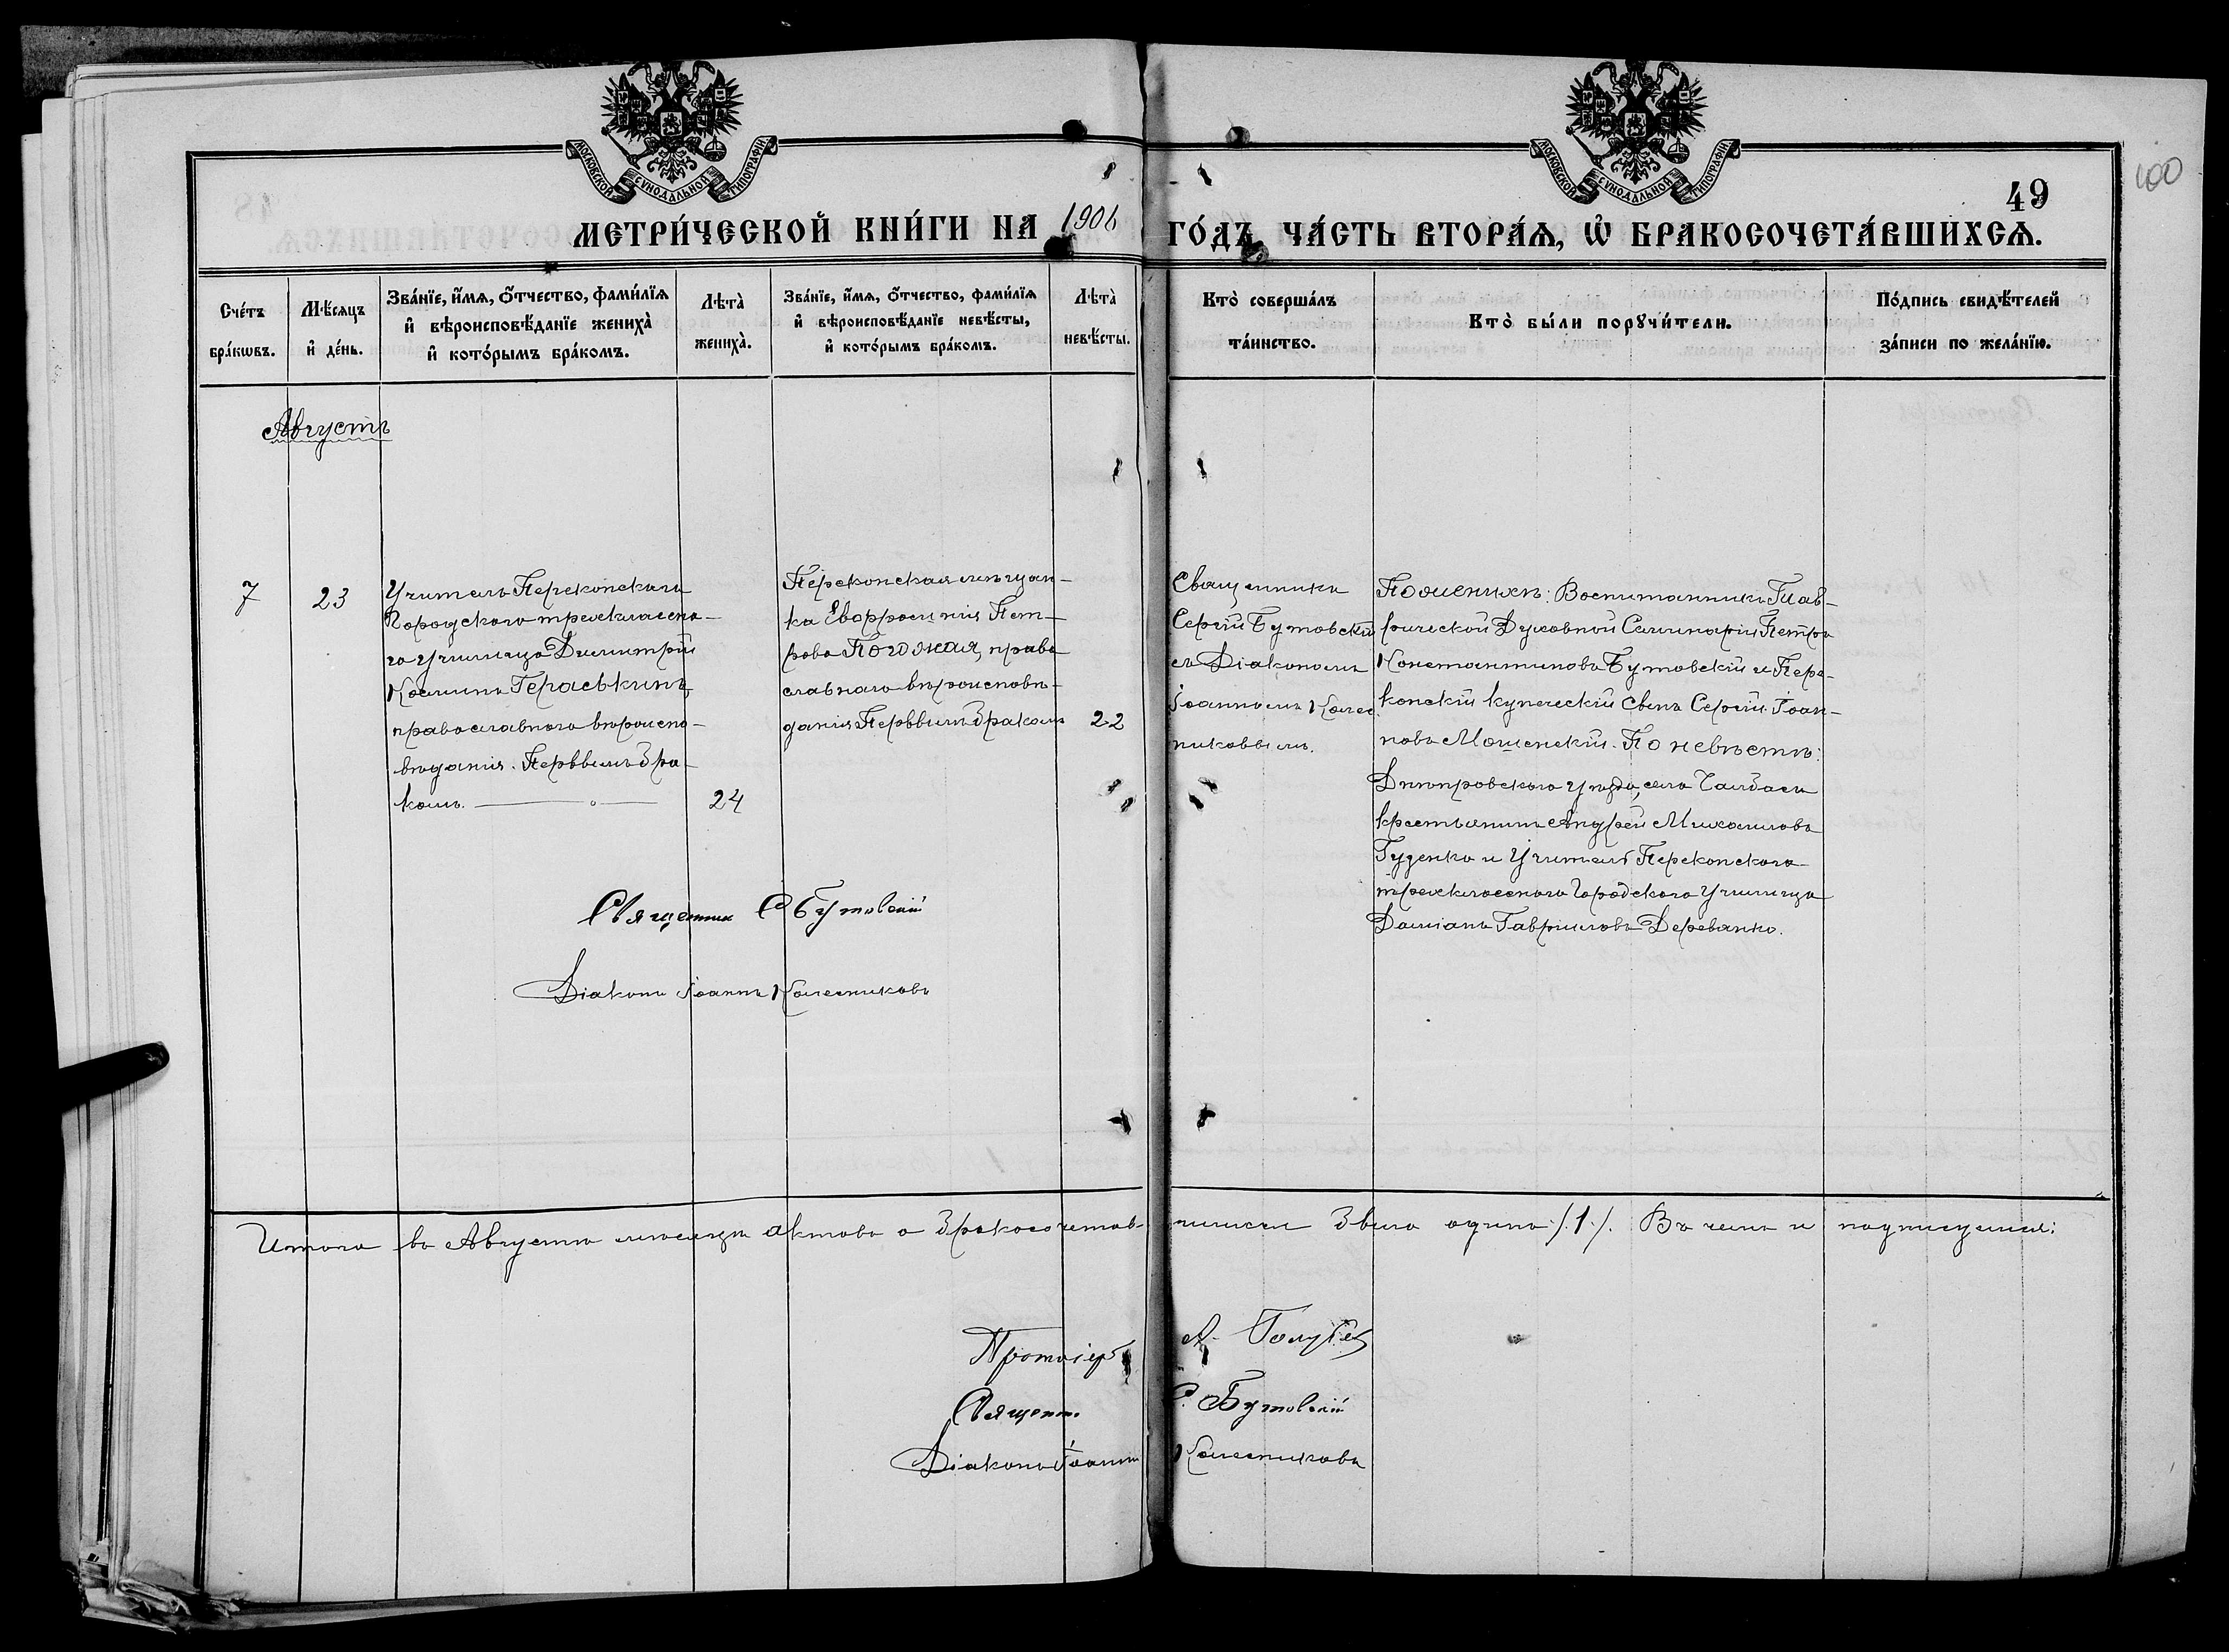 МОСКОВСКОЙ СѴНОДАЛЬНОЙ ТИПОГРАФІИ.
МОСКОВСКОЙ СѴНОДАЛЬНОЙ ТИПОГРАФІИ.
100
49
МЕТРИ́ЧЕСКОЙ КНИ́ГИ НА 1906 ГО́ДЪ, ЧА́СТЬ ВТОРА́Ѧ, Ѡ҆ БРАКОСОЧЕТА́ВШИХСѦ.
Сче́тъ
бра́кѡвъ.
Мѣ́сяцъ
и҆ де́нь.
Зва́нїе, и҆́мѧ, ѻ҆́тчество, фами́лїѧ
и҆ вѣроисповѣ́данїе жениха̀
и҆ кото́рымъ бра́комъ.
Лѣта̀
жениха̀.
Зва́нїе, и҆́мѧ, ѻ҆́тчество, фами́лїѧ
и҆ вѣроисповѣ́данїе невѣ́сты,
и҆ кото́рымъ бра́комъ.
Лѣта̀
невѣ́сты.
Кто̀ соверша́лъ
та́инство.
Кто̀ бы́ли порꙋчи́тели.
По́дпись свидѣ́телей
за́писи по жела́нїю.
Августъ
7
23
Учитель Перекопскаго
Городского трехкласно-
го училища Димитрій
Косминъ Гераськинъ,
православнаго вѣроиспо-
вѣданія. Первымъ бра-
комъ.
24
Перекопская мѣщан-
ка Евфросинія Пет-
рова Погожая, право
славнаго вѣроисповѣ-
данія Первымъ бракомъ
22
Священникъ
Сергій Бутовскій
съ Діакономъ
Іоанномъ Колес
никовымъ.
По женихѣ: Воспитанникъ Тав-
рической Духовной Семинаріи Петръ
Константиновъ Бутовскій и Пере-
копскій купеческій сынъ Сергій Іоан-
новъ Мошенскій. По невѣстѣ:
Днѣпровскаго уѣзда, села Чалбасы
крестьянинъ Андрей Михаиловъ
Гуденко и Учитель Перекопскаго
трехкласснаго Городского Училища
Даміанъ Гавриловъ Деревянко.
Священникъ С Бутовскій
Діаконъ Іоаннъ Колесниковъ
Итого въ Августѣ мѣсяцѣ актовъ о бракосочетав-шихся было одинъ /.1./. Въ чемъ и подписуемся:
Протоіер А. Голубев
Священн. С. Бутовскій
Діаконъ Іоаннъ Колесниковъ